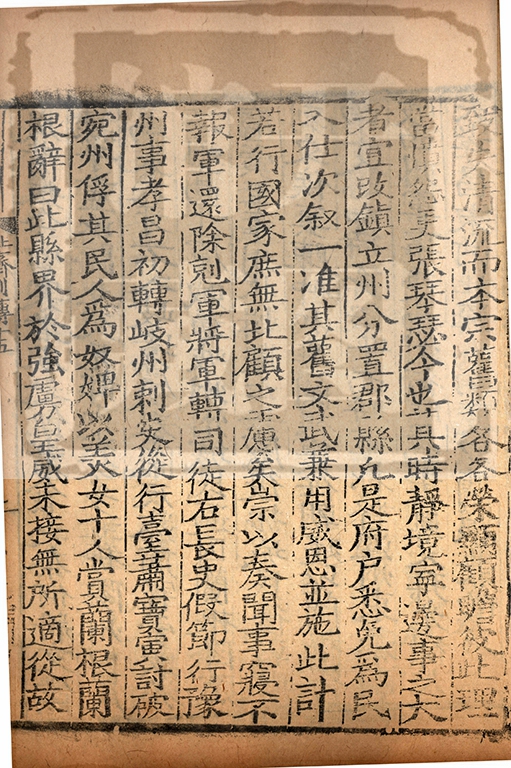 致失清流而本宗舊類各各榮顯顧瞻彼此理
當憤怨更張琴瑟今也其時靜境寧邊事之大
者宜改鎮立州分置郡縣凡是府戶悉免爲民
入仕次叙一准其舊文武兼用威恩並施此計
若行國家庶無北顧之慮矣崇以奏聞事寢不
報軍還除剋軍將軍轉司徒右長史假節行豫
州事孝昌初轉岐州刺史從行臺蕭寶寅討破
宛州俘其民人爲奴婢以美女十人賞蘭根蘭
根辭曰此縣界於強虜皇威未接無所適從故